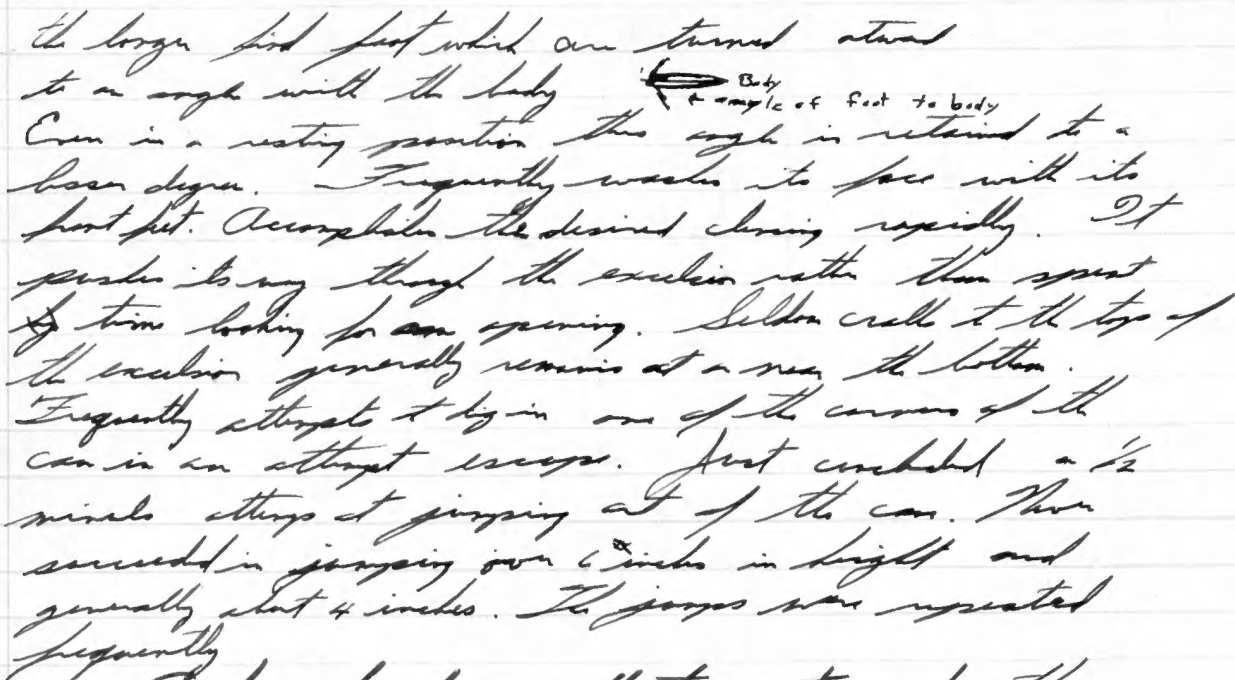 the longer hind feet which are turned otward
to an angle with the body Body
← angle of foot to body
Even in a resting position this angle is retained to a
lesser degree. Frequently washes its face with its
front feet. Accomplishes the desired clening rapidly. It
pushes its way through the excelsior rather than spent
time looking for an opening. Seldom cralls to the tops of
the excelsior generally remains at or near the bottom.
Frequently attempts to dig in one of the corners of the
can in an attempt escape. Just concluded a 1/2
minute attemps at jumping out of the can. Never
succeeded in jumping over 6 inches in height and
generally about 4 inches. The jumps were repeated
frequently